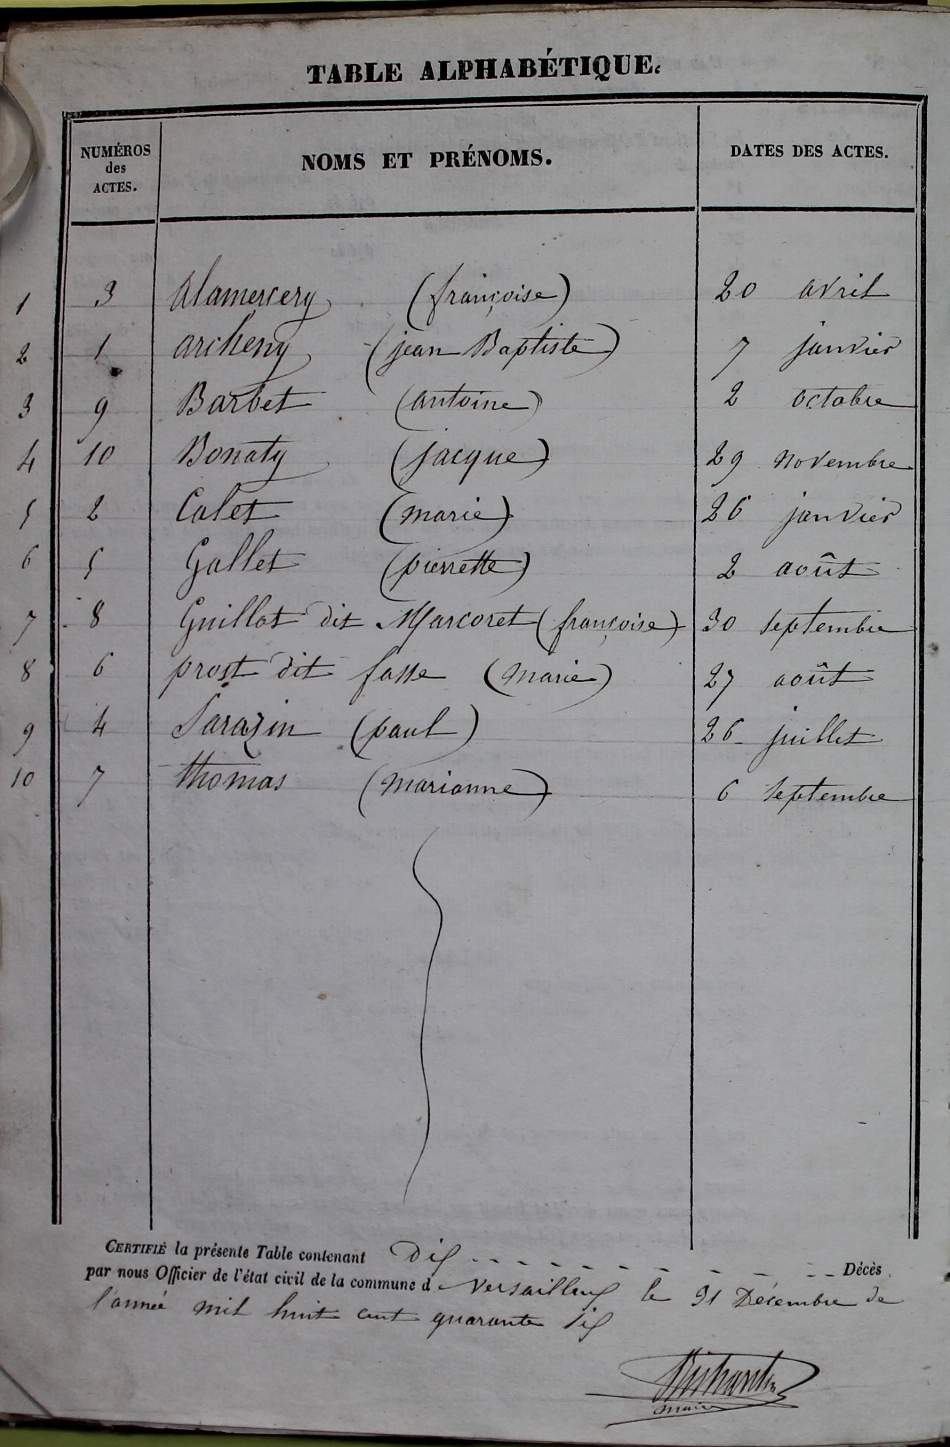 TABLE ALPHABÉTIQUE.
NUMÉROS des ACTES. NOMS ET PRÉNOMS. DATES DES ACTES.
1 3 alamercery (françoise) 20 avril
2 1 archeny (jean Baptiste) 7 janvier
3 9 Barbet (antoine) 2 octobre
4 10 Bonaty (jacque) 29 novembre
5 2 Calet (marie) 26 janvier
6 5 Gallet (pierrette) 2 août
7 8 Guillot dit Marcoret (françoise) 30 septembre
8 6 prost dit fasse (marie) 27 août
9 4 Sarazin (paul) 26 juillet
10 7 thomas (marianne) 6 septembre
CERTIFIÉ la présente Table contenant Dix Décès
par nous Officier de l'état civil de la commune d Versailleux le 31 Décembre de
l'année mil huit cent quarante six
maire